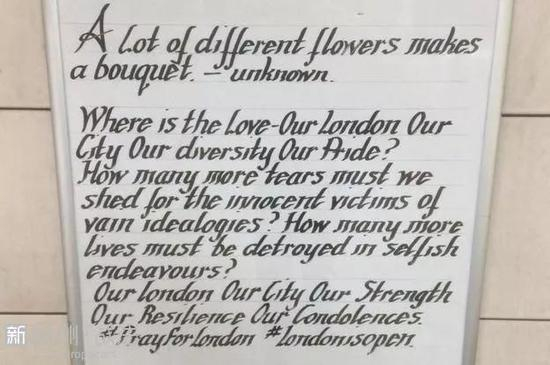 A Lot of different flowers makes
a bouquet. – unknown.
Where is the Love-Our London Our
City Our diversity Our Pride?
How many more tears must we
shed for the innocent victims of
vain idealogies? How many more
lives must be detroyed in selfish
endeavours?
Our London Our City Our Strength
Our Resilience Our Condolences.
#Prayforlondon #londonisopen.
新